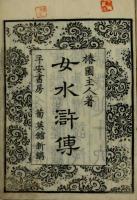 椿園主人著
女水滸傳
平安書房 菊英館新鐫